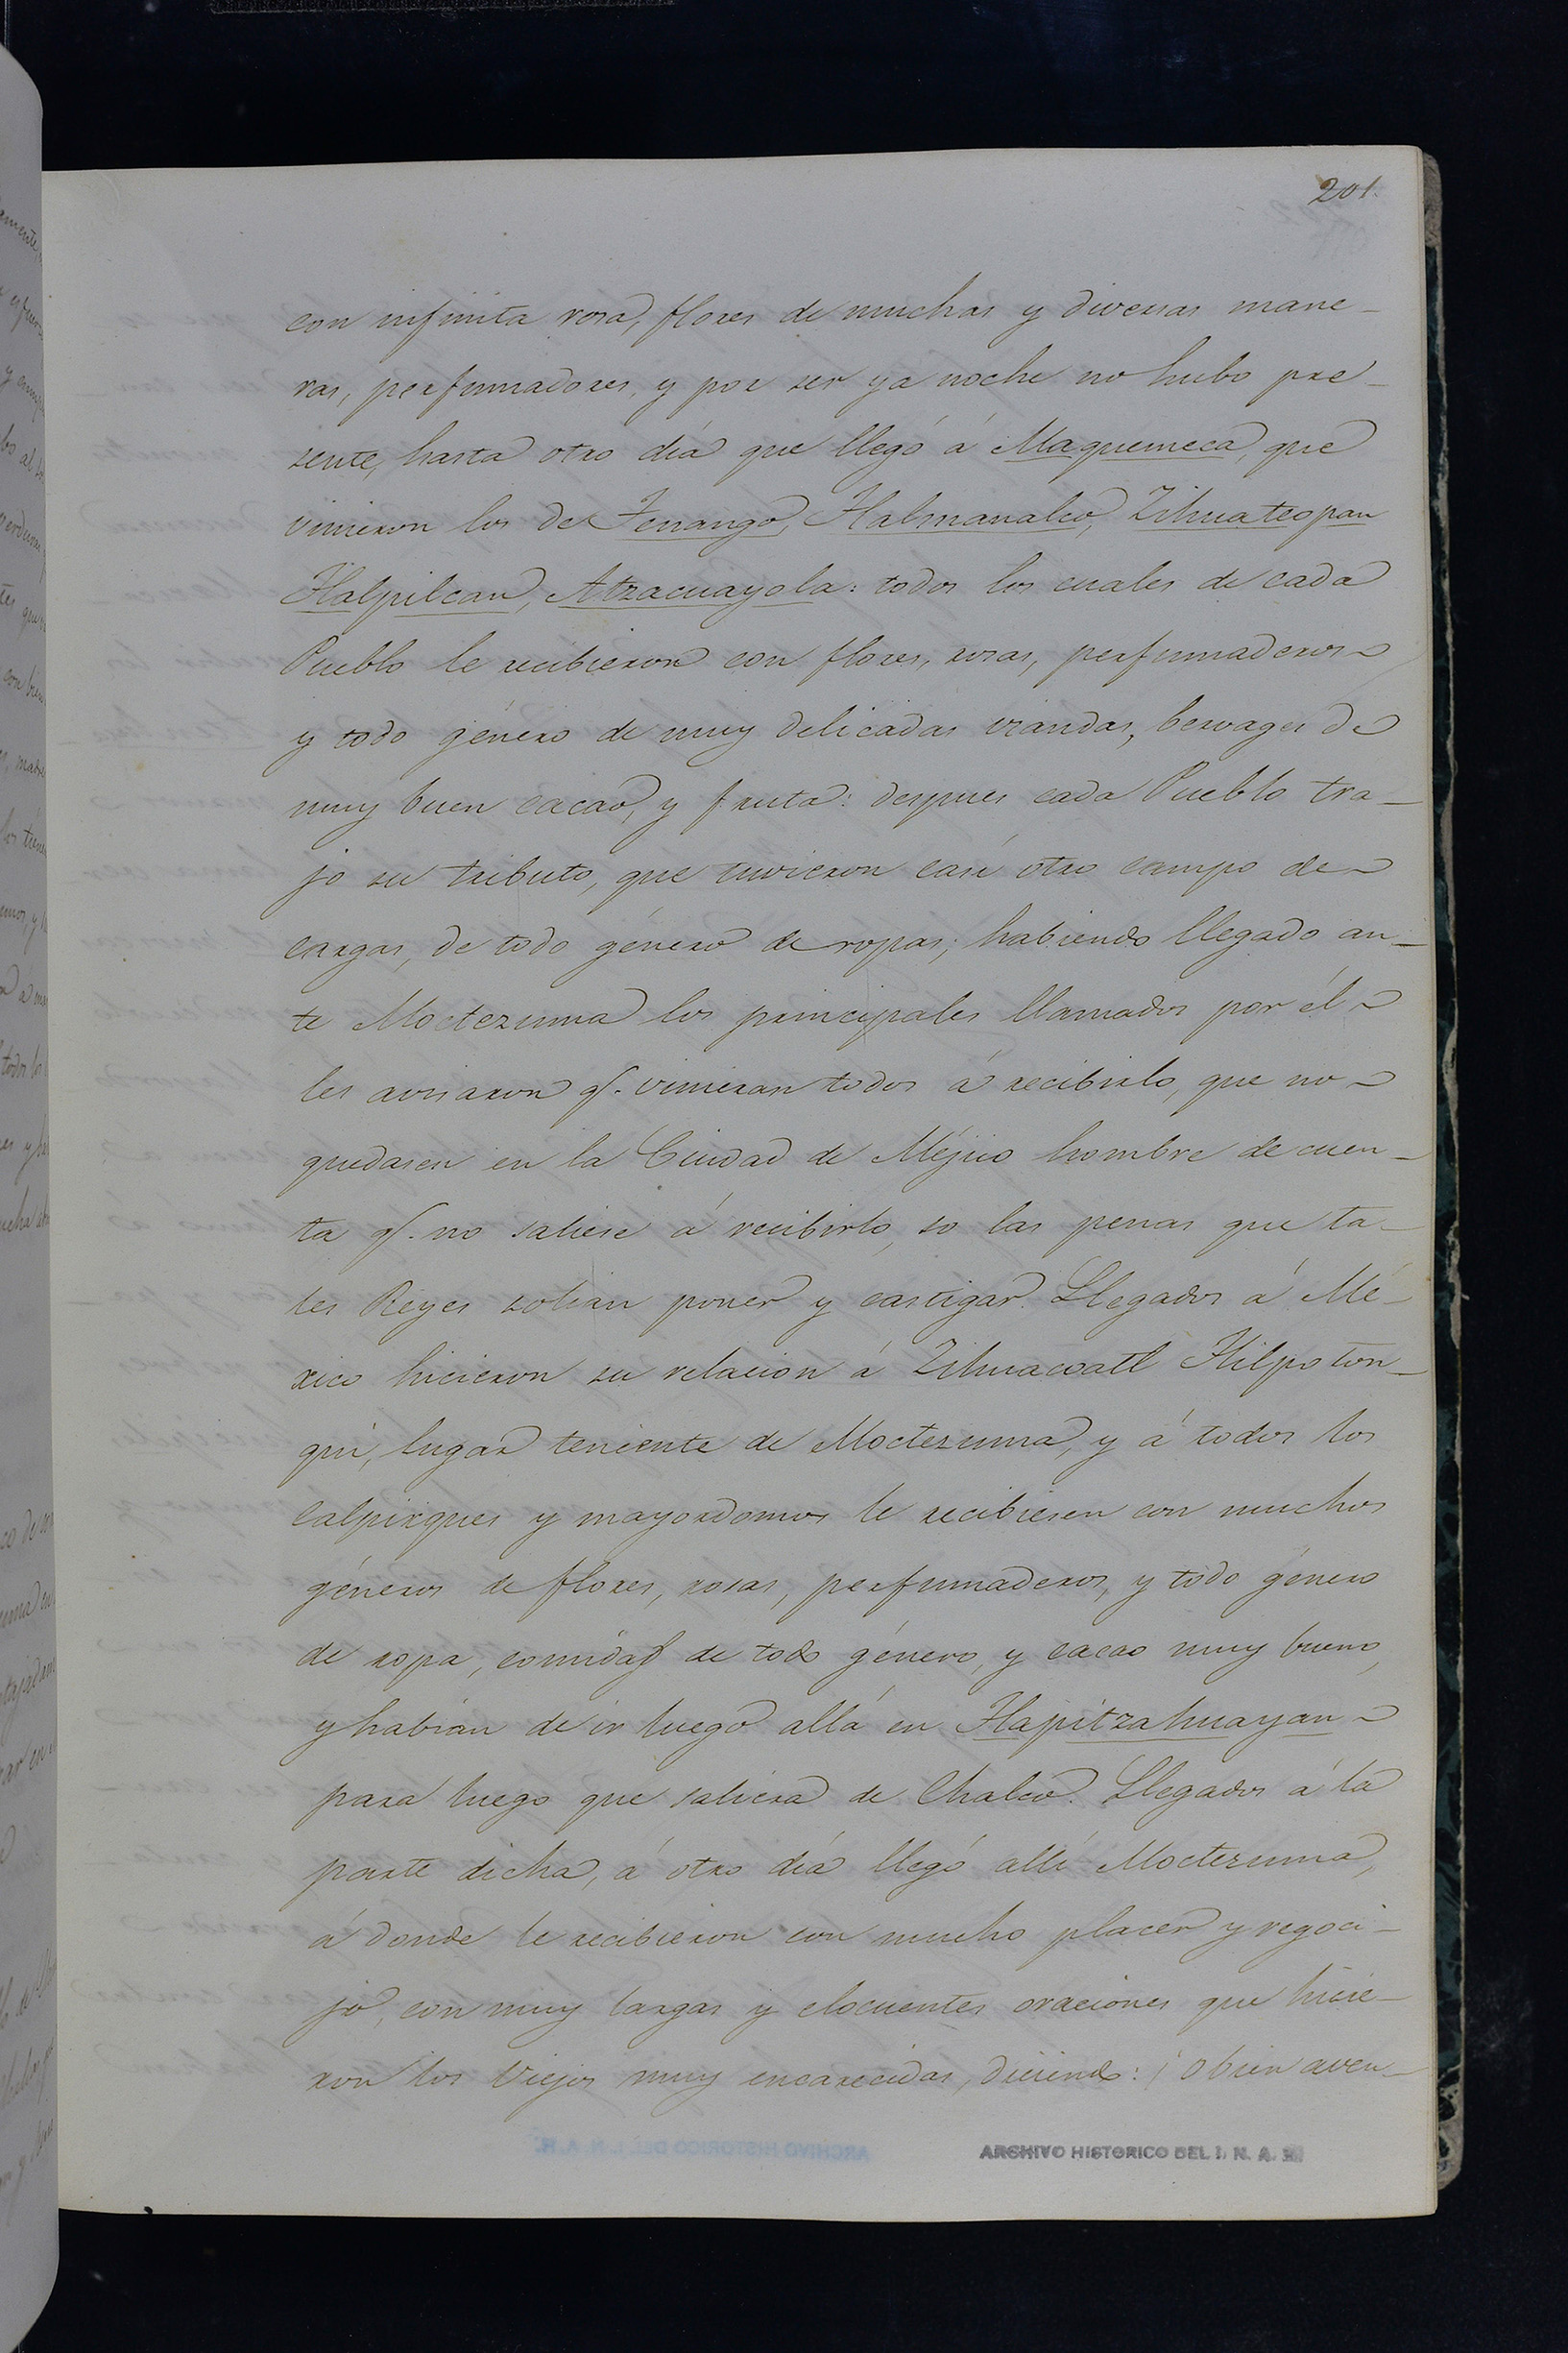 201.
con infinita rosa, flores de muchas y diversas mane-
ras, perfumadores, y por ser ya noche no hubo pre-
sente, hasta otro dia que llegó á Maquemeca, que
vinieron los de Tenango, Tlalmanalco, Zihuateopan
Tlalpilcan, Atzacuayola: todos los cuales de cada
Pueblo le recibieron con flores, rosas, perfumaderos
y todo género de muy delicadas viandas, bervages de
muy buen cacao, y fruta: despues cada Pueblo tra-
jo su tributo, que tuvieron casi otro campo de
cargas, de todo género de ropas; habiendo llegado an-
te Moctezuma los principales llamados por él
les avisaron q. vinieran todos á recibirlo, que no
quedasen en la Ciudad de Méjico hombre de cuen-
ta q. no saliese á recibirlo, so las penas que ta-
les Reyes solian poner y castigar. Llegados á Mé-
xico hicieron su relacion á Zihuacoatl Tlilpoton-
qui, lugar teniente de Moctezuma, y á todos los
calpixques y mayordomos le recibiesen con muchos
géneros de flores, rosas, perfumaderos, y todo género
de ropa, comidas de todo género, y cacao muy bueno,
y habian de ir luego allá en Tlapitzahuayan
para luego que saliera de Chalco. Llegados á la
parte dicha, á otro dia llegó alli Moctezuma,
á donde le recibieron con mucho placer y regoci-
jo, con muy largas y elocuentes oraciones que hicie-
ron los Viejos muy encarecidas, diciendo: ¡O bien aven-
ARCHIVO HISTORICO DEL I. N. A. H.